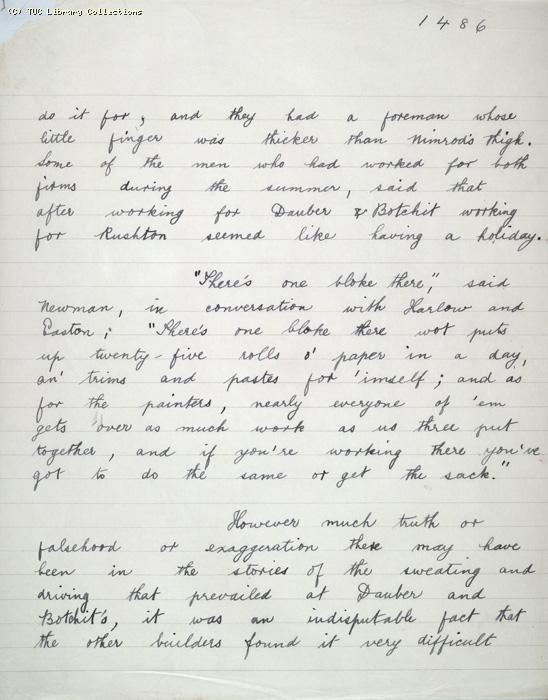 (C) TUC Library Collections
1486
do it for, and they had a foreman whose
little finger was thicker than Nimrod's thigh.
Some of the men who had worked for both
firms during the summer, said that
after working for Dauber & Botchit working
for Rushton seemed like having a holiday.
"There's one bloke there", said
Newman, in conversation with Harlow and
Easton; "There's one bloke there wot puts
up twenty-five rolls o' paper in a day,
an' trims and pastes for 'imself; and as
for the painters, nearly everyone of 'em
gets over as much work as us three put
together, and if you're working there you've
got to do the same or get the sack."
However much truth or
falsehood or exaggeration there may have
been in the stories of the sweating and
driving that prevailed at Dauber and
Botchit's, it was an indisputable fact that
the other builders found it very difficult